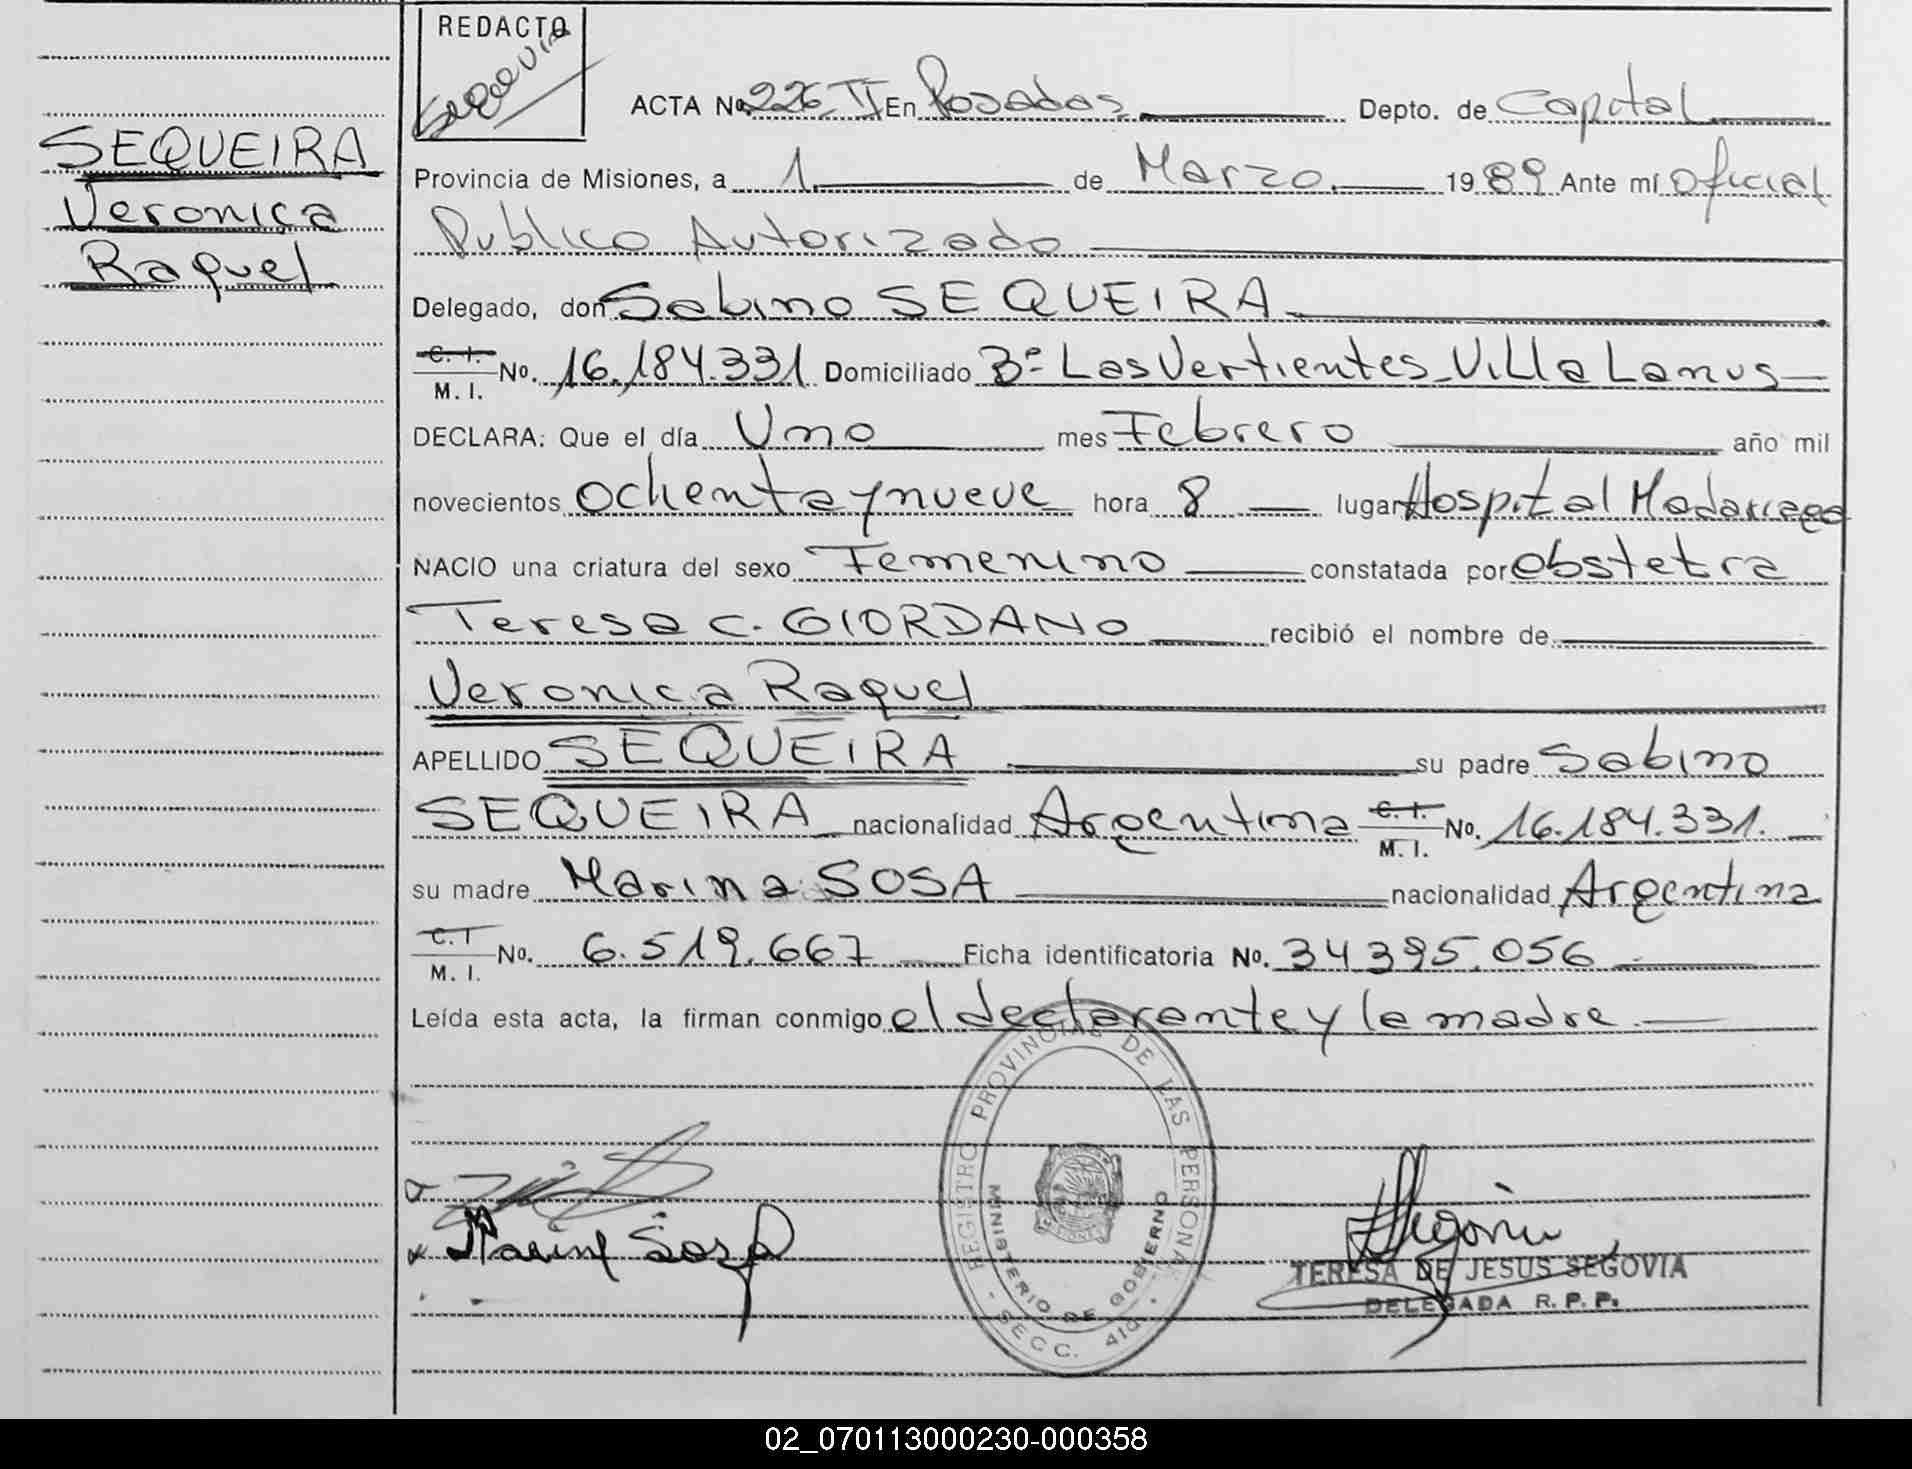 REDACTO
SEQUEIRA
Veronica
Raquel
ACTA No. 226 II En Posadas Depto. de Capital
Provincia de Misiones, a 1 de Marzo 1989 Ante mí Oficial
Publico Autorizado
Delegado, don Sabino SEQUEIRA
C. I. M. I. No. 16.184.331 Domiciliado Bº Las Vertientes - Villa Lanus
DECLARA: Que el día Uno mes Febrero año mil
novecientos ochenta y nueve hora 8 lugar Hospital Madariaga
NACIO una criatura del sexo Femenino constatada por Obstetra
Teresa C. GIORDANO recibió el nombre de
Veronica Raquel
APELLIDO SEQUEIRA su padre Sabino
SEQUEIRA nacionalidad Argentina C. I. M. I. No. 16.184.331.
su madre Marina SOSA nacionalidad Argentina
C. I M. I. No. 6.519.667 Ficha identificatoria No. 34.395.056
Leída esta acta, la firman conmigo el declarante y la madre.
REGISTRO PROVINCIAL DE LAS PERSONAS
MINISTERIO DE GOBIERNO
SECC. 
Marina Sosa
Segovia
TERESA DE JESUS SEGOVIA
DELEGADA R. P. P.
02_070113000230-000358